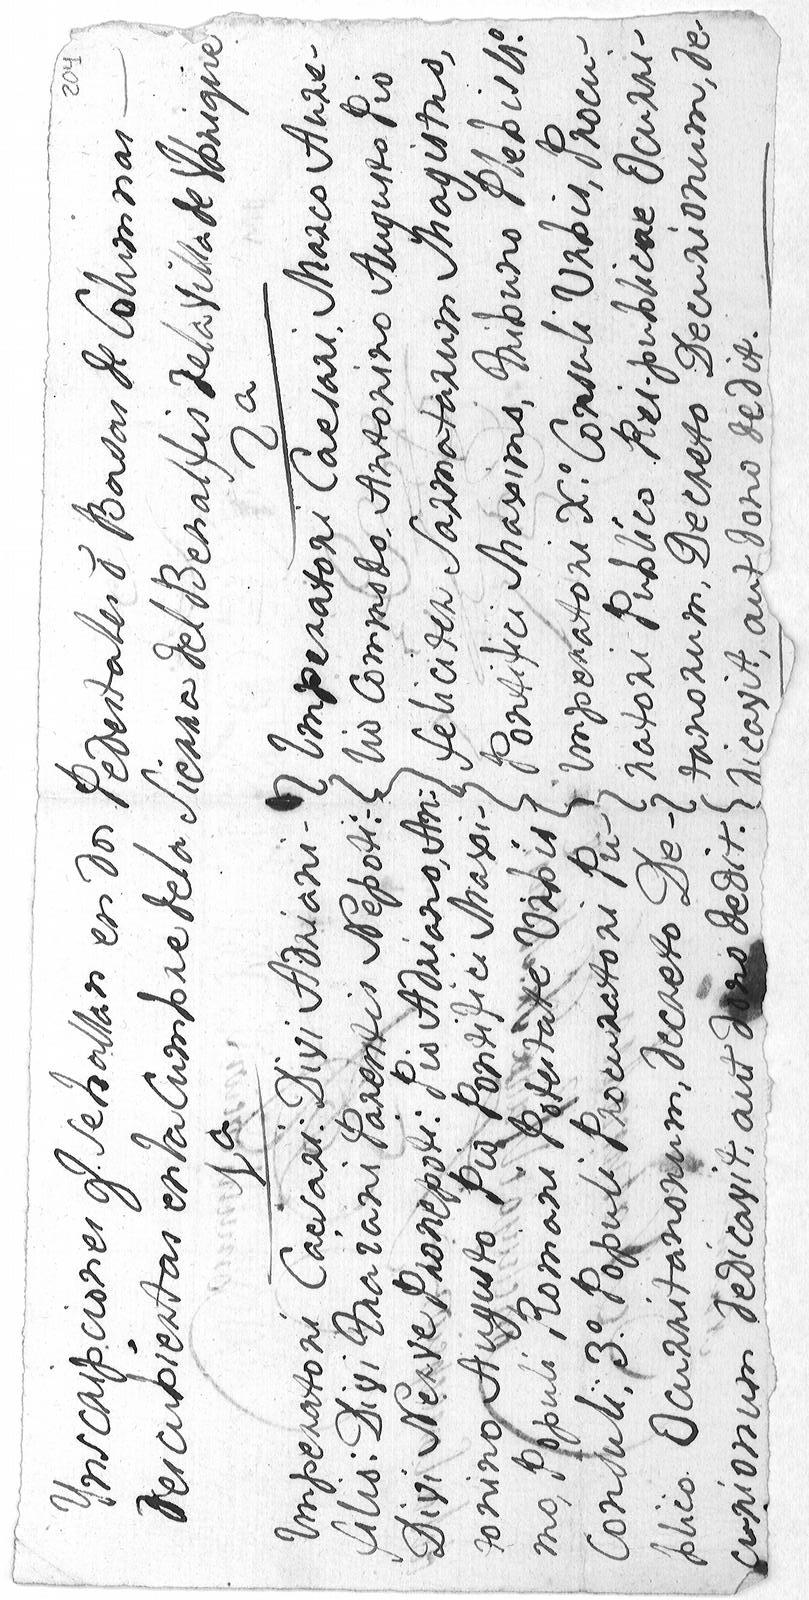 204
Ynscripciones q.e se hallan en dos Pedestales ò Basas de Columnas
descubiertas en la Cumbre de la Sierra del Benalfis de la Villa de Ubrique
1a
Imperatori Caesari: Divi Adriani-
filio: Divi Trazani Parentis Nepoti:
Divi Nerve Pronepoti: Pio Adriano, An:
tonino Augusto Pio Pontifici Maxi-
mo, Populi Romani Potestate Urbis
Consuli, 3º Populi Procuratori Pu-
plico Ocurritanorum, decreto De-
curionum dedicavit, aut dono dedit.
2a
Imperatori Caesari, Marco Aure-
lio Commodo Antonino Augusto Pio
feliciter Sarmatarum Magistro,
Pontifici Maximo, Tribuno Plebis 4º
Imperatori X.º Consuli Urbis, Procu-
ratori Publico Rei-publicae Ocurri-
tanorum, Decreto Decurionum, de-
dicavit, aut dono dedit.